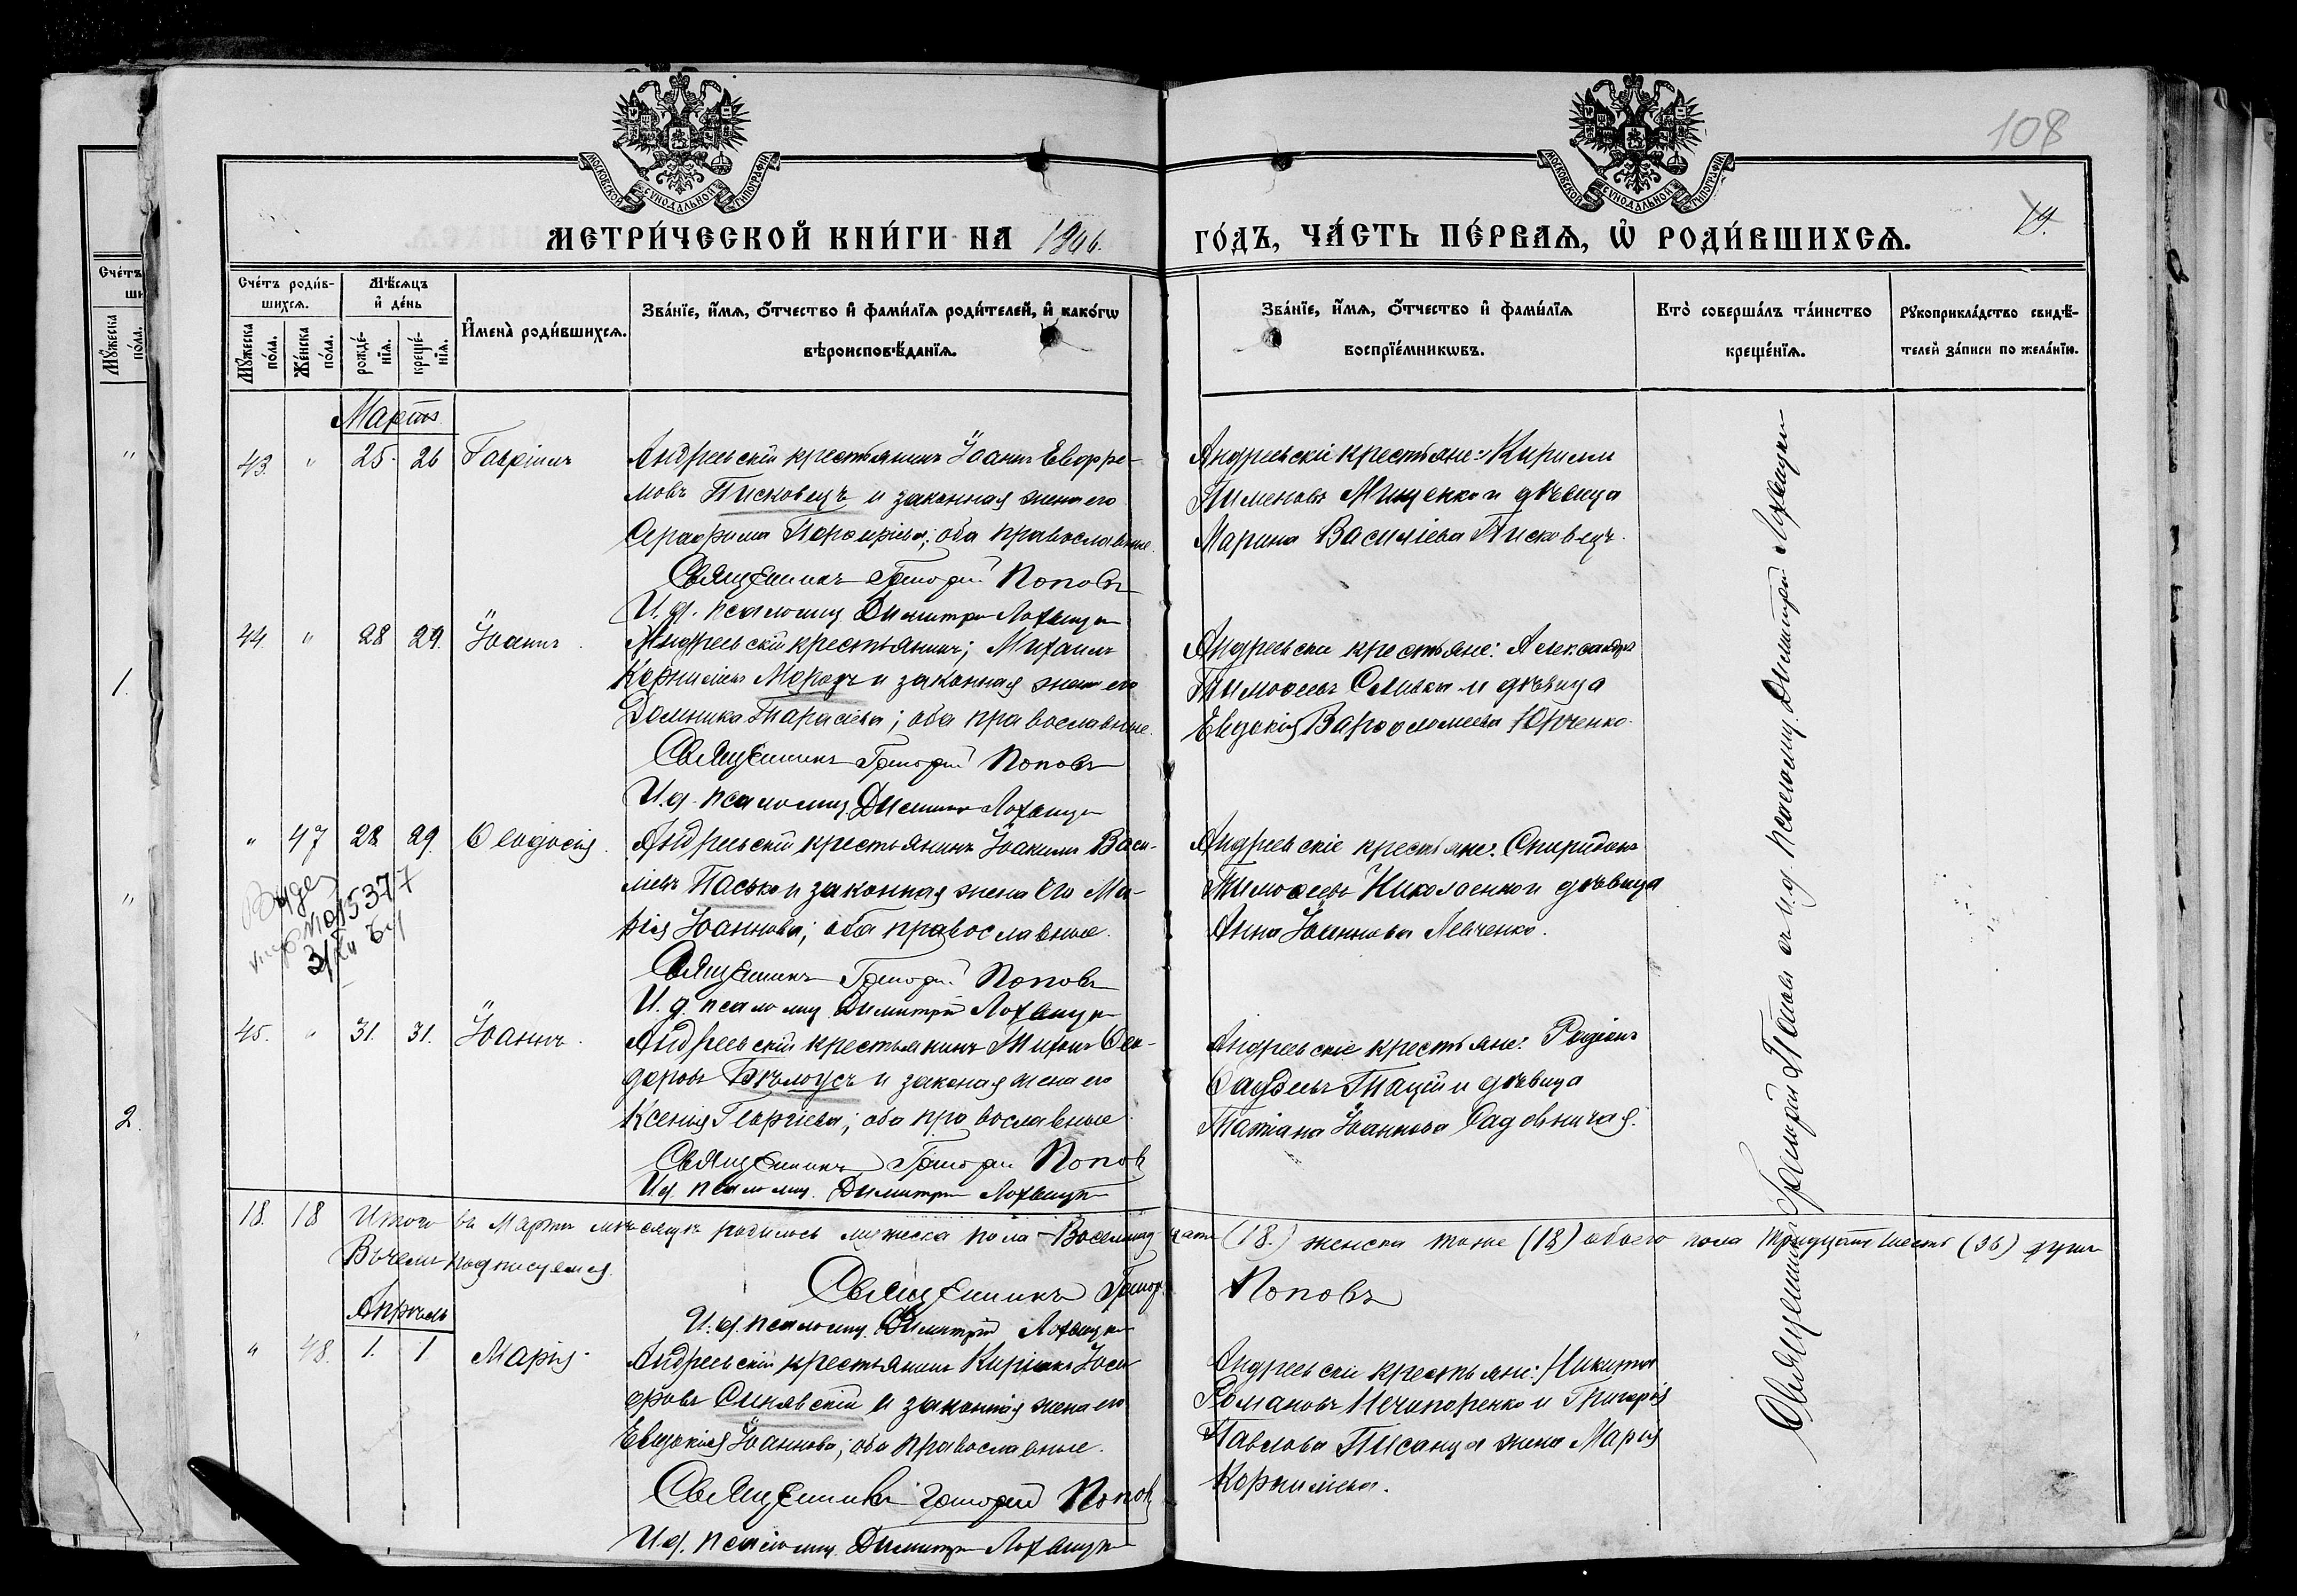 МОСКОВСКОЙ СУНОДАЛЬНОЙ ТИПОГРАФІИ
МОСКОВСКОЙ СУНОДАЛЬНОЙ ТИПОГРАФІИ
108
19.
МЕТРИ́ЧЕСКОЙ КНИ́ГИ НА 1906.
ГО́ДЪ, ЧА́СТЬ ПЕ́РВАѦ, Ѡ РОДИ́ВШИХСѦ.
Сче́тъ роди́в-
шихсѧ.
Мѣ́сѧцъ
и҆ де́нь
Мꙋ́жеска по́ла.
Же́нска по́ла.
рожде́-нїѧ.
креще́-нїѧ.
И҆мена̀ роди́вшихсѧ.
Зва́нїе, и҆́мѧ, ѻ҆́тчество и҆ фами́лїѧ роди́телей, и҆ како́гѡ
вѣроисповѣ́данїѧ.
Зва́нїе, и҆́мѧ, ѻ҆́тчество и҆ фами́лїѧ
воспрїе́мникѡвъ.
Кто̀ соверша́лъ та́инство
креще́нїѧ.
Рꙋкоприкла́дство свидѣ́-
телей за́писи по жела́нїю.
Мартъ
43. " 25. 26 Гавріилъ
Андреевскій крестьянинъ Іоаннъ Евфре-
мовъ Писковецъ и законная жена его
Серафима Порфиріева; оба православные.
Священникъ Григорій Поповъ
И. д. псаломщ. Димитрій Лохвицкій
Андреевскіе крестьяне: Кириллъ
Пименовъ Мищенко и дѣвица
Марина Василіева Писковецъ.
44. " 28 29. Іоаннъ.
Андреевскій крестьянинъ; Михаилъ
Корниліевъ Морозъ и законная жена его
Домника Тарасіева; оба православные.
Священникъ Григорій Поповъ
И. д. псаломщ. Димитрій Лохвицкій
Андреевскіе крестьяне: Александръ
Тимоѳеевъ Сливка и дѣвица
Евдокія Варѳоломеева Юрченко.
" 47 28 29. Ѳеодосія.
Андреевскій крестьянинъ Іоакимъ Васи-
ліевъ Пасько и законная жена его Ма-
рія Іоаннова; оба православные.
Священникъ Григорій Поповъ
И. д. псаломщ. Димитрій Лохвицкій
Андреевскіе крестьяне: Спиридонъ
Тимоѳеевъ Николаенко и дѣвица
Анна Іоаннова Левченко.
№15377
45. " 31. 31. Іоаннъ.
Андреевскій крестьянинъ Тихонъ Ѳео-
доровъ Бѣлоусъ и законая жена его
Ксенія Георгіева; оба православные.
Священникъ Григорій Поповъ
И. д. псаломщ. Димитрій Лохвицкій
Андреевскіе крестьяне: Родіонъ
и дѣвица
Татіана Іоаннова Садовничая.
18. 18 Итого въ Мартѣ мѣсяцѣ родилось мужеска пола - Восемнадцать (18.) женска тоже (18) обоего пола тридцать шесть (36) душъ
Въ чемъ подписуемся.
Священникъ Григорій Поповъ
И. д. псаломщ. Димитрій Лохвицкій
Апрѣль
" 48. 1. 1 Марія.
Андреевскій крестьянинъ Кирикъ Іоси-
фовъ Синявскій и законная жена его
Евдокія Іоаннова; оба православные.
Священникъ Григорій Поповъ
И. д. псаломщ. Димитрій Лохвицкій
Андреевскіе крестьяне: Никита
Романовъ Нечипоренко и Григорія
Павлова Писанца жена Марія
Корниліева.
Священникъ Григорій Поповъ съ и. д. псаломщ. Димитрій Лохвицкій
1.
2.